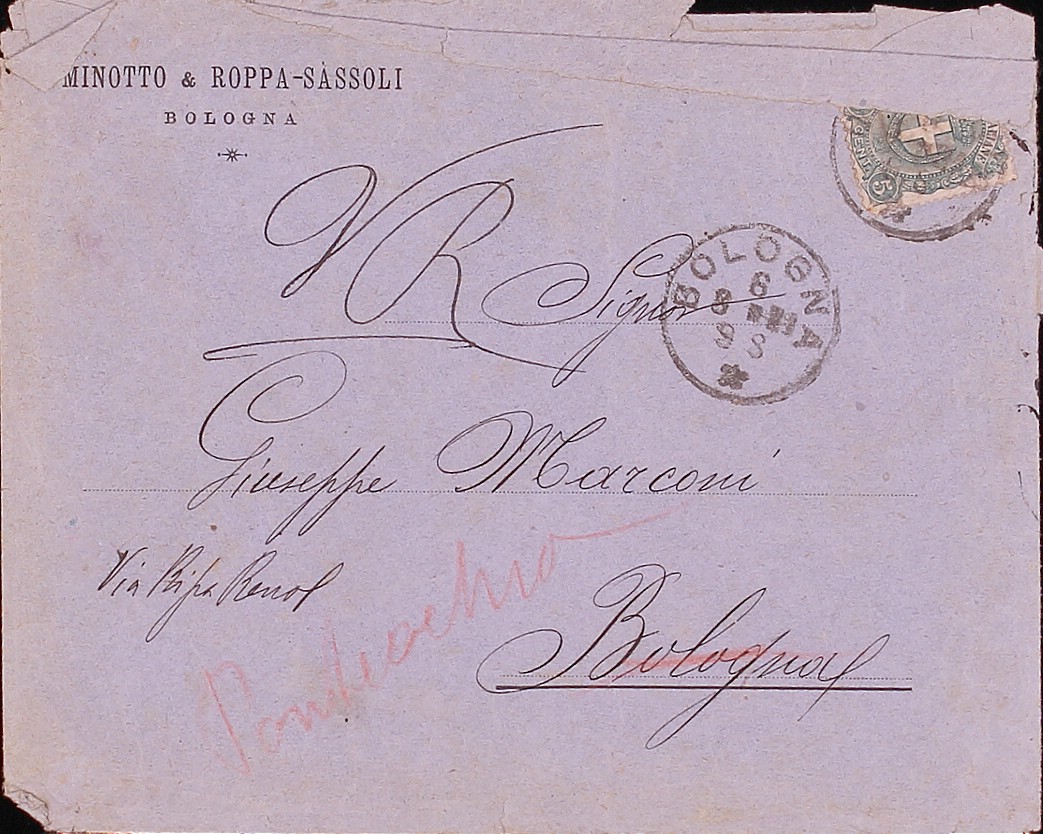 MINOTTO & ROPPA-SASSOLI
BOLOGNA
CENT. 5
BOLOGNA
VR Signor
Giuseppe Marconi
Via Ripa Reno
Pontecchio
Bologna